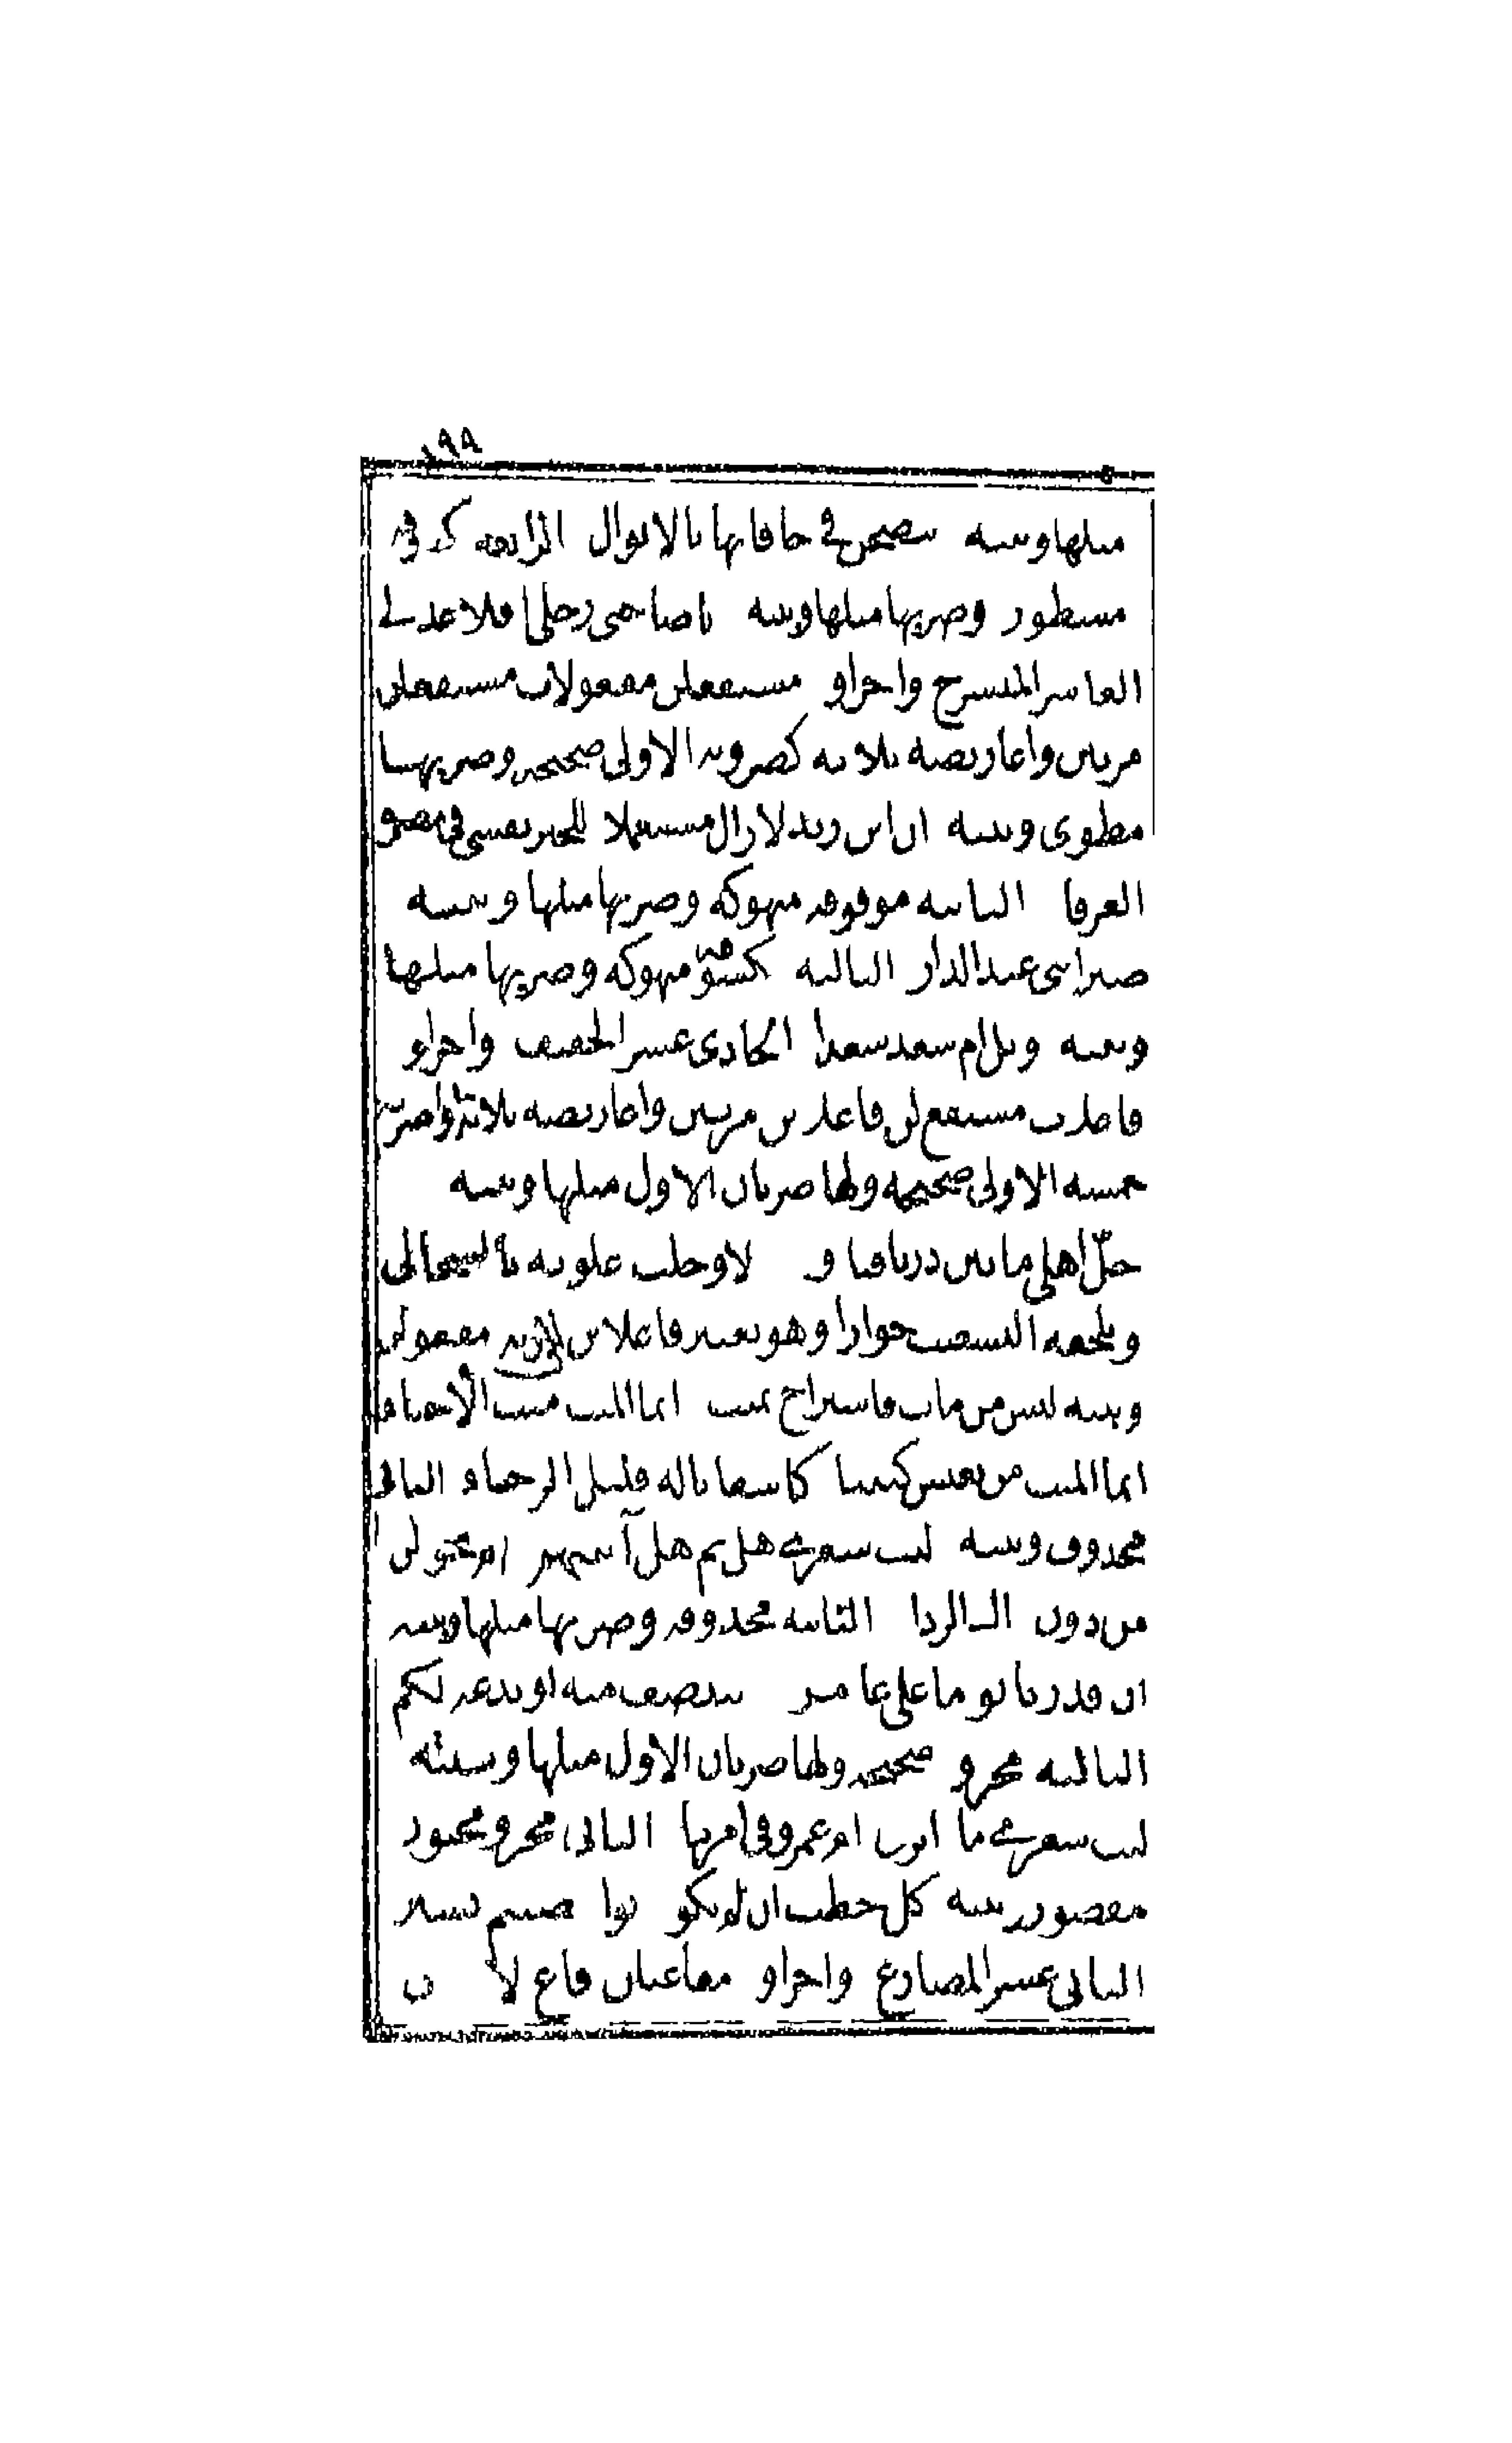 ١٩٨
مثلها وبيته ينضحن في حافاتها بالابوال الرابعة مكسوفة
مشطورة وضربها مثلها وبيته يا صاحبي رحلي اقلا عذلي
العاشر المنسرح واجزاؤه مستفعلن مفعولات مستفعلن
مرتين واعاريضه ثلاثة كضروبه الاولى صحيحة وضربها
مطوي وبيته ان ابن زيد لا زال مستعملا للخير يفشي في مصره
العرفا الثانية موقوفة منهوكة وضربها مثلها وبيته
صبرا بني عبد الدار الثالثة مكسوفة منهوكة وضربها مثلها
وبيته ويل ام سعد سعدا الحادي عشر الخفيف واجزاؤه
فاعلاتن مستفع لن فاعلاتن مرتين واعاريضه ثلاثة واضربه
خمسة الاولى صحيحة ولها ضربان الاول مثلها وبيته
حل اهلي ما بين درنا فبا دو لا وحلت علوية بالسخال
ويلحقه التشعيث جوازا وهو تغيير فاعلاتن لزنة مفعولن
وبيته ليس من مات فاستراح بميت انما الميت ميت الاحياء
انما الميت من يعيش كئيبا كاسفا باله قليل الرجاء الثاني
محذوف وبيته ليت شعري هل ثم هل آتينهم ام يحولن
من دون ذاك الردا الثانية محذوفة وضربها مثلها وبيته
ان قدرنا يوما على عامر ننتصف منه او ندعه لكم
الثالثة مجزوة صحيحة ولها ضربان الاول مثلها وبيته
ليت شعري ماذا ترى ام عمرو في امرنا الثاني مجزو مخبون
مقصور وبيته كل خطب ان لم تكو نوا غضبتم يسير
الثاني عشر المضارع واجزاؤه مفاعيلن فاع لاتن